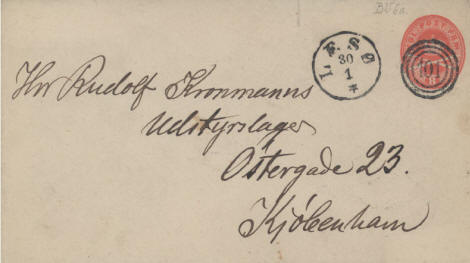 BV6a.
LÆSØ
30
1
101
Hr Rudolf Kronmanns
Udstyrslager
Ostergade 23.
Kjöbenhavn